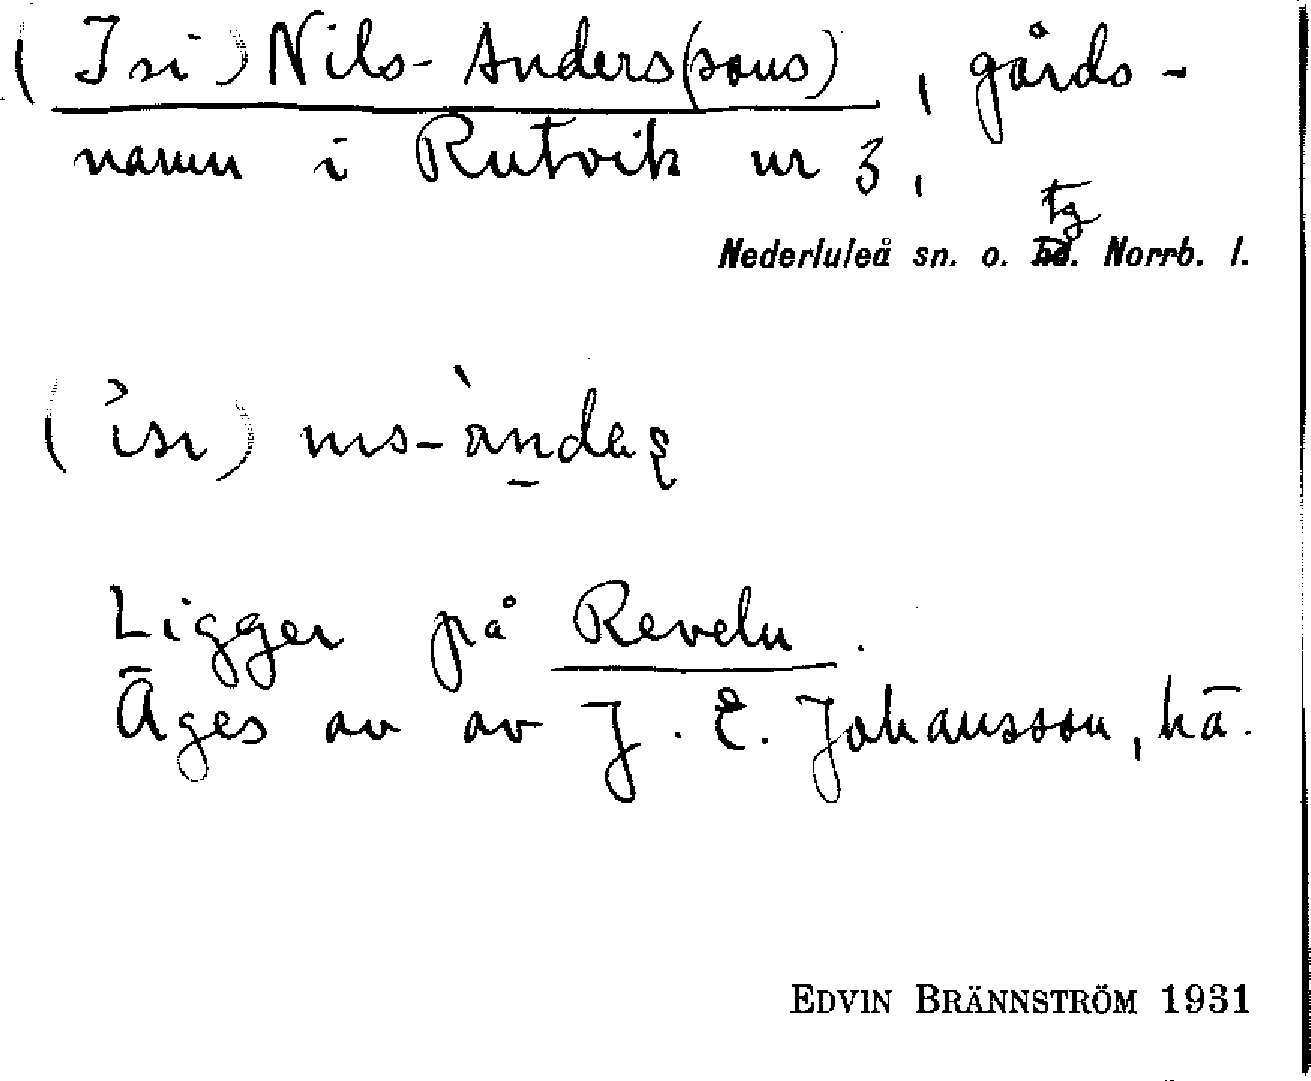 (Isi) Nils-Anders(sons), gårds-
namn i Rutvik nr 3,
tg
Nederluleå sn. o. hd. Norrb. l.
(ìsı) nıs-àndaş
Ligger på Reveln.
Äges av av J. E. Johansson, hä.
EDVIN BRÄNNSTRÖM 1931